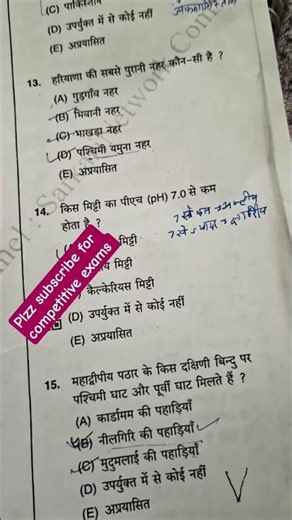 (C) पाकिस्तान
(D) उपर्युक्त में से कोई नहीं
(E) अप्रयासित
13. हरियाणा की सबसे पुरानी नहर कौन-सी है ?
(A) गुड़गाँव नहर
(B) भिवानी नहर
(C) भाखड़ा नहर
(D) पश्चिमी यमुना नहर
(E) अप्रयासित
14. किस मिट्टी का पीएच (pH) 7.0 से कम
होता है ?
मिट्टी
मिट्टी
कैल्केरियस मिट्टी
(D) उपर्युक्त में से कोई नहीं
(E) अप्रयासित
Plzz subscribe for
competitive exams
15. महाद्वीपीय पठार के किस दक्षिणी बिन्दु पर
पश्चिमी घाट और पूर्वी घाट मिलते हैं ?
(A) कार्डामम की पहाड़ियाँ
(B) नीलगिरि की पहाड़ियाँ
(C) मुदुमलाई की पहाड़ियाँ
(D) उपर्युक्त में से कोई नहीं
(E) अप्रयासित